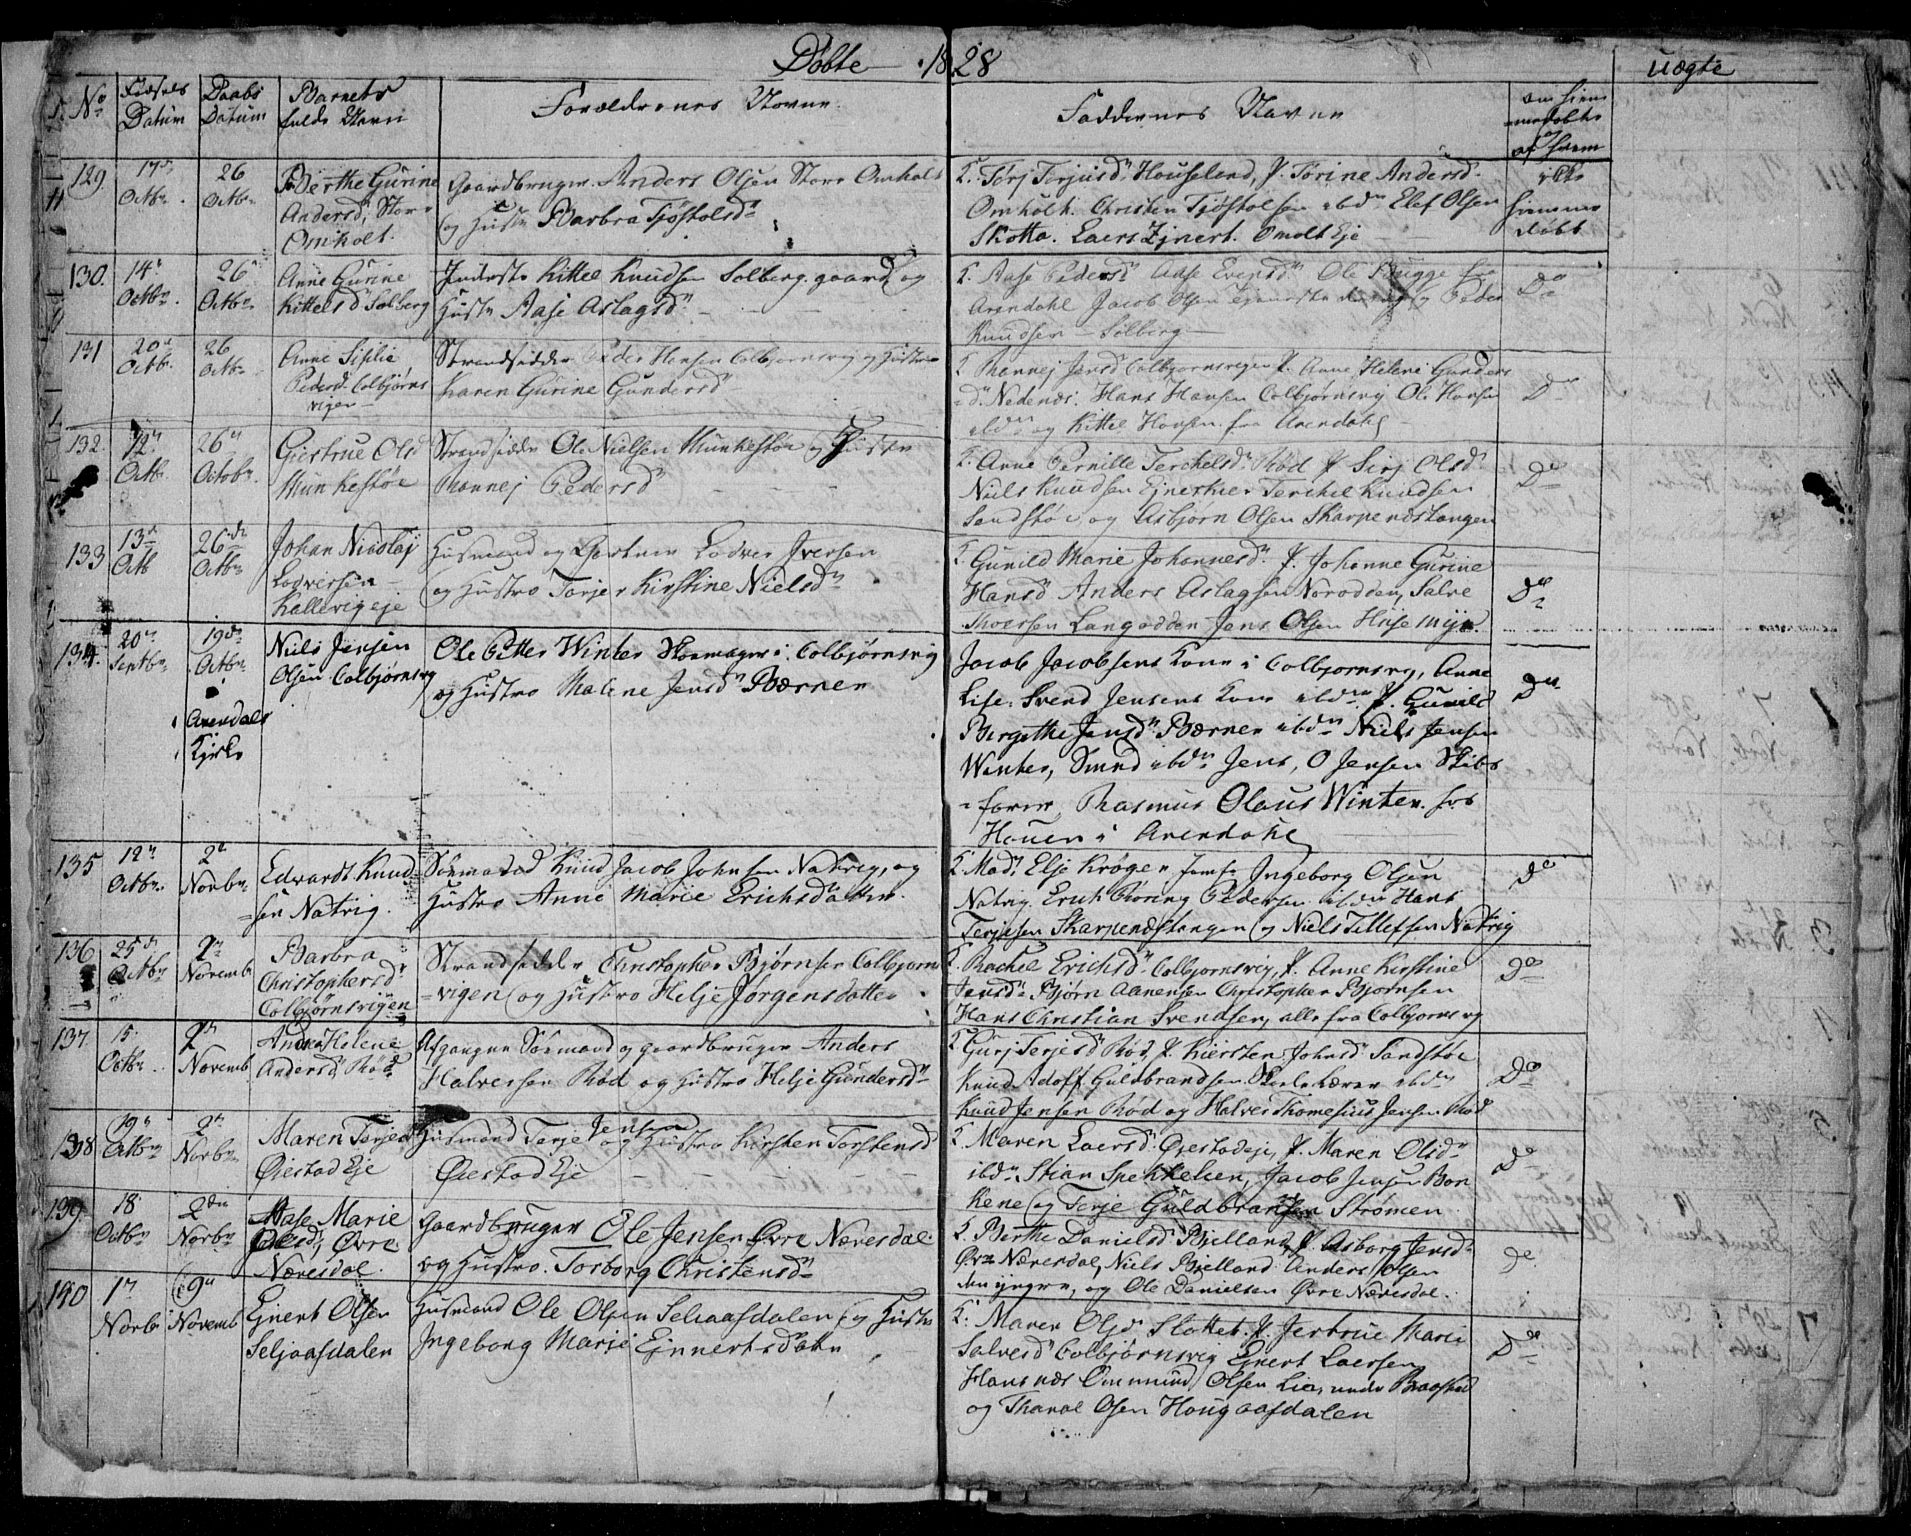 Døbte 1828
uægte
No
Fødsels Datum
Daabs Datum
Barnets fulde Navn
Forældrenes Navne.
Faddernes Navne
om hiemmedøbte og af hvem
129
17de Octbr.
26 Octbr
Berthe Gurine
Andersd. Store
Omholt.
Gaardbruger Anders Olsen Store Omholt
og Hustr Barbra Tjøstolsdr
Terj Terjusdr Houseland, J. Torine Andersdr
Omholt. Christen Tjøstolsen ibdm Elef Olsen
Skotta. Laers Ejnert. Omolt Eje
ikke hiemmedøbt
130.
14de Octbr.
26de Octbr
Anne Gurine
Kittelsd Solberg
Inderste Kittel Knudsen Solberg gaard og
Hustr Aase Aslagsdr
Aase Pedersdr Aase Evensdr Ole Bugge fra
Arendahl Jacob Olsen og Peder
Knudsen Solberg
Do
131
20de Octbr.
26 Octbr
Anne Siplie
Pedersd. Colbjørns
vigen
Strandsidder Peder Hansen Colbjørnsvig og Hustroe
Karen Gurine Gundersdr
Ronnej Jensd Colbjørnsvigen J. Anne Helene Gunders
dr Nedenæs. Hans Hansen Colbjørnsvig Ole Hansen
ibdm og Kittel Hansen fra Arendahl
Do
132.
12te Octb.
26de Octobr
Giertrue Olsd
Munkestøe
Strandsidder Ole Nielsen Munkestøe og Hustro
Ronnej Pedersdr
Anne Pernille Terchelsdr Rød J. Sirj Olsdr
Niels Knudsen Ejneskier Terchel Knudsen
Sandstøe og Asbjørn Olsen Skarpenæstangen
Do
133
13de Octb
26de Octbr
Johan Nicolaj
Lodversen
Kallevig eje
Husmand og Gartner Lodver Iversen
og Hustro Torjer Kirstine Nielsdr
Gunild Marie Johannesdr J. Johanne Gurine
Hansd Anders Aslagsen Norodden, Salve
Thoersen Langodden Jens Olsen Huse myr.
Do
134.
20de Septbr
19de Octbr i Arendals Kirke
Niels Jensen
Olsen Colbjørnsvig
Ole Petter Winter Skomager i Colbjørnsvig
og Hustro Malene Jensdr Bærner
Jacob Jacobsens Kone i Colbjørnsvig, Anne
Lise. Svend Jensens Kone ibdm J. Gunild
Bergethe Jensdr Bærner ibdm Niels Jensen
Winter, Smed ibdm Jens, O Jensen Skibs
fører, Rasmus Olaus Winter hos
Houen i Arendahl
Do
135
12te Octbr.
2de Novbr
Edvardt Knud
sen Natvig.
Sømand Knud Jacob Johnsen Natvig, og
Hustro Anne Marie Erichsdatter.
Mad. Elje Krøger Jomfr Ingeborg Olsen
Natvig. Erich Røring Pedersen ibdm Hans
Terjesen Skarpenæstangen og Niels Tellefsen Natvig
Do
136
25de Octbr
2de Novemb
Barbra
Christophersdr
Colbjørnsvigen
Strandsidder Christopher Bjørnsen Colbjørns
vigen og Hustro Helje Jørgensdatter
Rachel Erichsdr Colbjørnsvig, J. Anne Kirstine
Jensdr Bjørn Aanensen Christopher Bjørnsen
Hans Christian Svendsen, alle fra Colbjørnsvig
Do
137.
15. Octbr.
2de Novemb
Andrea Helene
Andersdr Rød
Afgangne Sømand og gaardbruger Anders
Halversen Rød og Hustro Helje Gundersdr
Gurj Terjesdr Rød, J. Kiersten Johnsdr Sandstøe
Knud Adolf Guldbrandsen Skolelærer ibdm
Knud Jensen Rød og Halver Thomesius Jensen Rød
Do
138
19de Octbr
2de Novbr
Maren Terjesd
Øiestad Eje
Husmand Terje Jensen og Hustro Kirsten Torstensd
Øiestad Eje
Maren Laersdr Øiestadeje, J. Maren Olsdr
ibdm Stian Spekkelsen, Jacob Jensen Bor
kene og Terje Guldbransen Strømen
Do
139
18. Octbr
2den Novbr
Aase Marie
Olesd, Øvre
Næresdal.
Gaardbruger Ole Jensen Øvre Næresdal.
og Hustro. Torborg Christensdr
Berthe Danielsd Bjelland, J. Asborg Jensdr
Øvre Næresdal, Niels Bjelland Anders Olsen
den yngre, og Ole Danielsen Øvre Næresdal.
do.
140
1de Novbr
9de Novemb
Ejnert Olsen
Seljaasdalen
Husmand Ole Olsen Seljaasdalen og Hustr
Ingeborg Marie Ejnnertsdattr
Maren Olsdr Slottet. J. Jertrue Marie
Salvesdr Colbjørnsvig Ejnert Laersen
Hansnæs Ommund Olsen Lien, under Braastad
og Tharal Olsen Hougaasdalen
Do